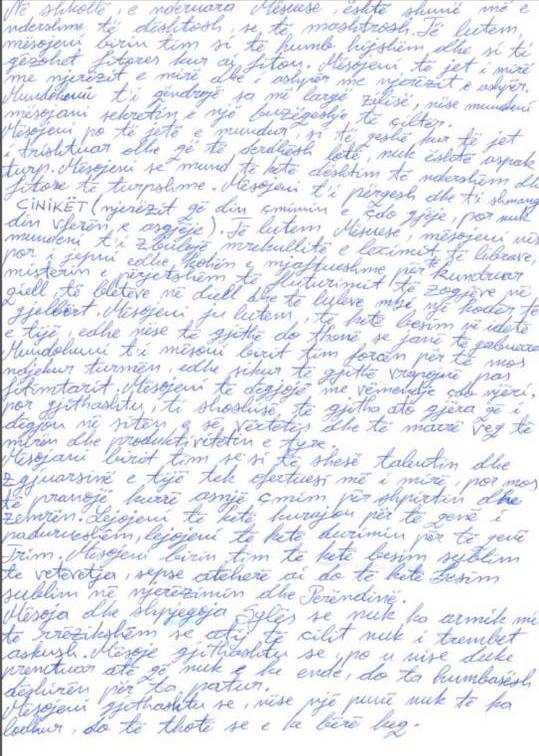 Në shkollë, e nderuara Mësuese, është shumë më e
ndershme të dështosh, se të mashtrosh. Të lutem,
mësojeni birin tim si të humb hijshëm dhe si të
gëzohet fitores kur ai fiton. Mësojeni të jet i mirë
me njerëzit e mirë dhe i ashpër me njerëzit e ashpër.
Mundohuni t'i qëndrojë sa më largë zilisë, nëse mundeni
mësojani sekretin e një buzëqeshje të çiltër.
Mësojeni po të jetë e mundur, si të qeshë kur të jet
i trishtuar dhe që të derdhësh lotë, nuk është aspak
turp. Mësojeni se mund të ketë dështim të ndershëm dhe
fitore të turpshme. Mësojeni t'i përqesh dhe t'i shmang
CINIKËT (njerëzit që din çmimin e çdo gjëje, por nuk
din vlerën e asgjëje). Të lutem, Mësuese, mësojeni nëse
mundeni t'i zbulojë mrekullitë e leximit të librave,
por i jepni edhe kohën e mjaftueshme për të kundruar
misterin e përjetshëm të fluturimit të zogjëve në
qiell, të bletëve në diell dhe të luleve mbi një kodër të
gjelbërt. Mësojeni ju lutem, të ketë besim në idetë
e tijë, edhe nëse të gjithë do thonë se janë të gabuara
Mundohuni t'i mësoni birit tim forcën për të mos
ndjekur turmën, edhe sikur të gjithë vrapojnë pas
fitimtarit. Mësojeni të dëgjojë me vëmendje çdo njëri,
por gjithashtu, ti shoshisë, të gjitha ato gjëra që i
dëgjon në sitën e së vërtetës dhe të marrë veç të
mirën dhe produktivitetin e tyre.
Mësojani birit tim se si të shesë talentin dhe
zgjuarsinë e tijë tek ofertuesi më i mirë, por mos
të pranojë kurrë asnjë çmim për shpirtin dhe
zemrën. Lejojeni të ketë kurajon për të qenë i
padurueshëm, lejojeni të ketë durimin për të qenë
trim. Mësojeni birin tim të ketë besim sublim
te vetëvetja, sepse atëherë ai do të ketë besim
sublim në njerëzimin dhe Perëndinë.
Mësoja dhe shpjegoja Sylës se nuk ka armik më
të rrëzikshëm se atij të cilit nuk i trembet
askush. Mësoje gjithashtu se, po u nise duke
premtuar atë që nuk e ke ende, do ta humbasësh
dëshirën për ta patur.
Mësojeni gjithashtu se, nëse një punë nuk të ka
lodhur, do të thotë se e ke bërë keq.